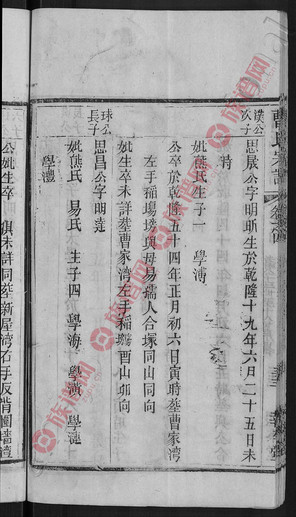 曹氏宗譜
卷之四
璞公次子
思展公字明昕生於乾隆十九年六月二十五日未
時
公卒於乾隆五十四年正月初六日寅時塟曹家湾
左手稲塲墈與母易孺人合冢同山同向
妣熊氏生子一 學溥
妣生卒未詳塟曹家湾左手稲塲酉山卯向
球公長子
思昌公字明達
妣熊氏 易氏 生子四 學海 學濱 學漣
學灃
公妣生卒 俱未詳同塟新屋湾右手反背園墻湾
族譜网